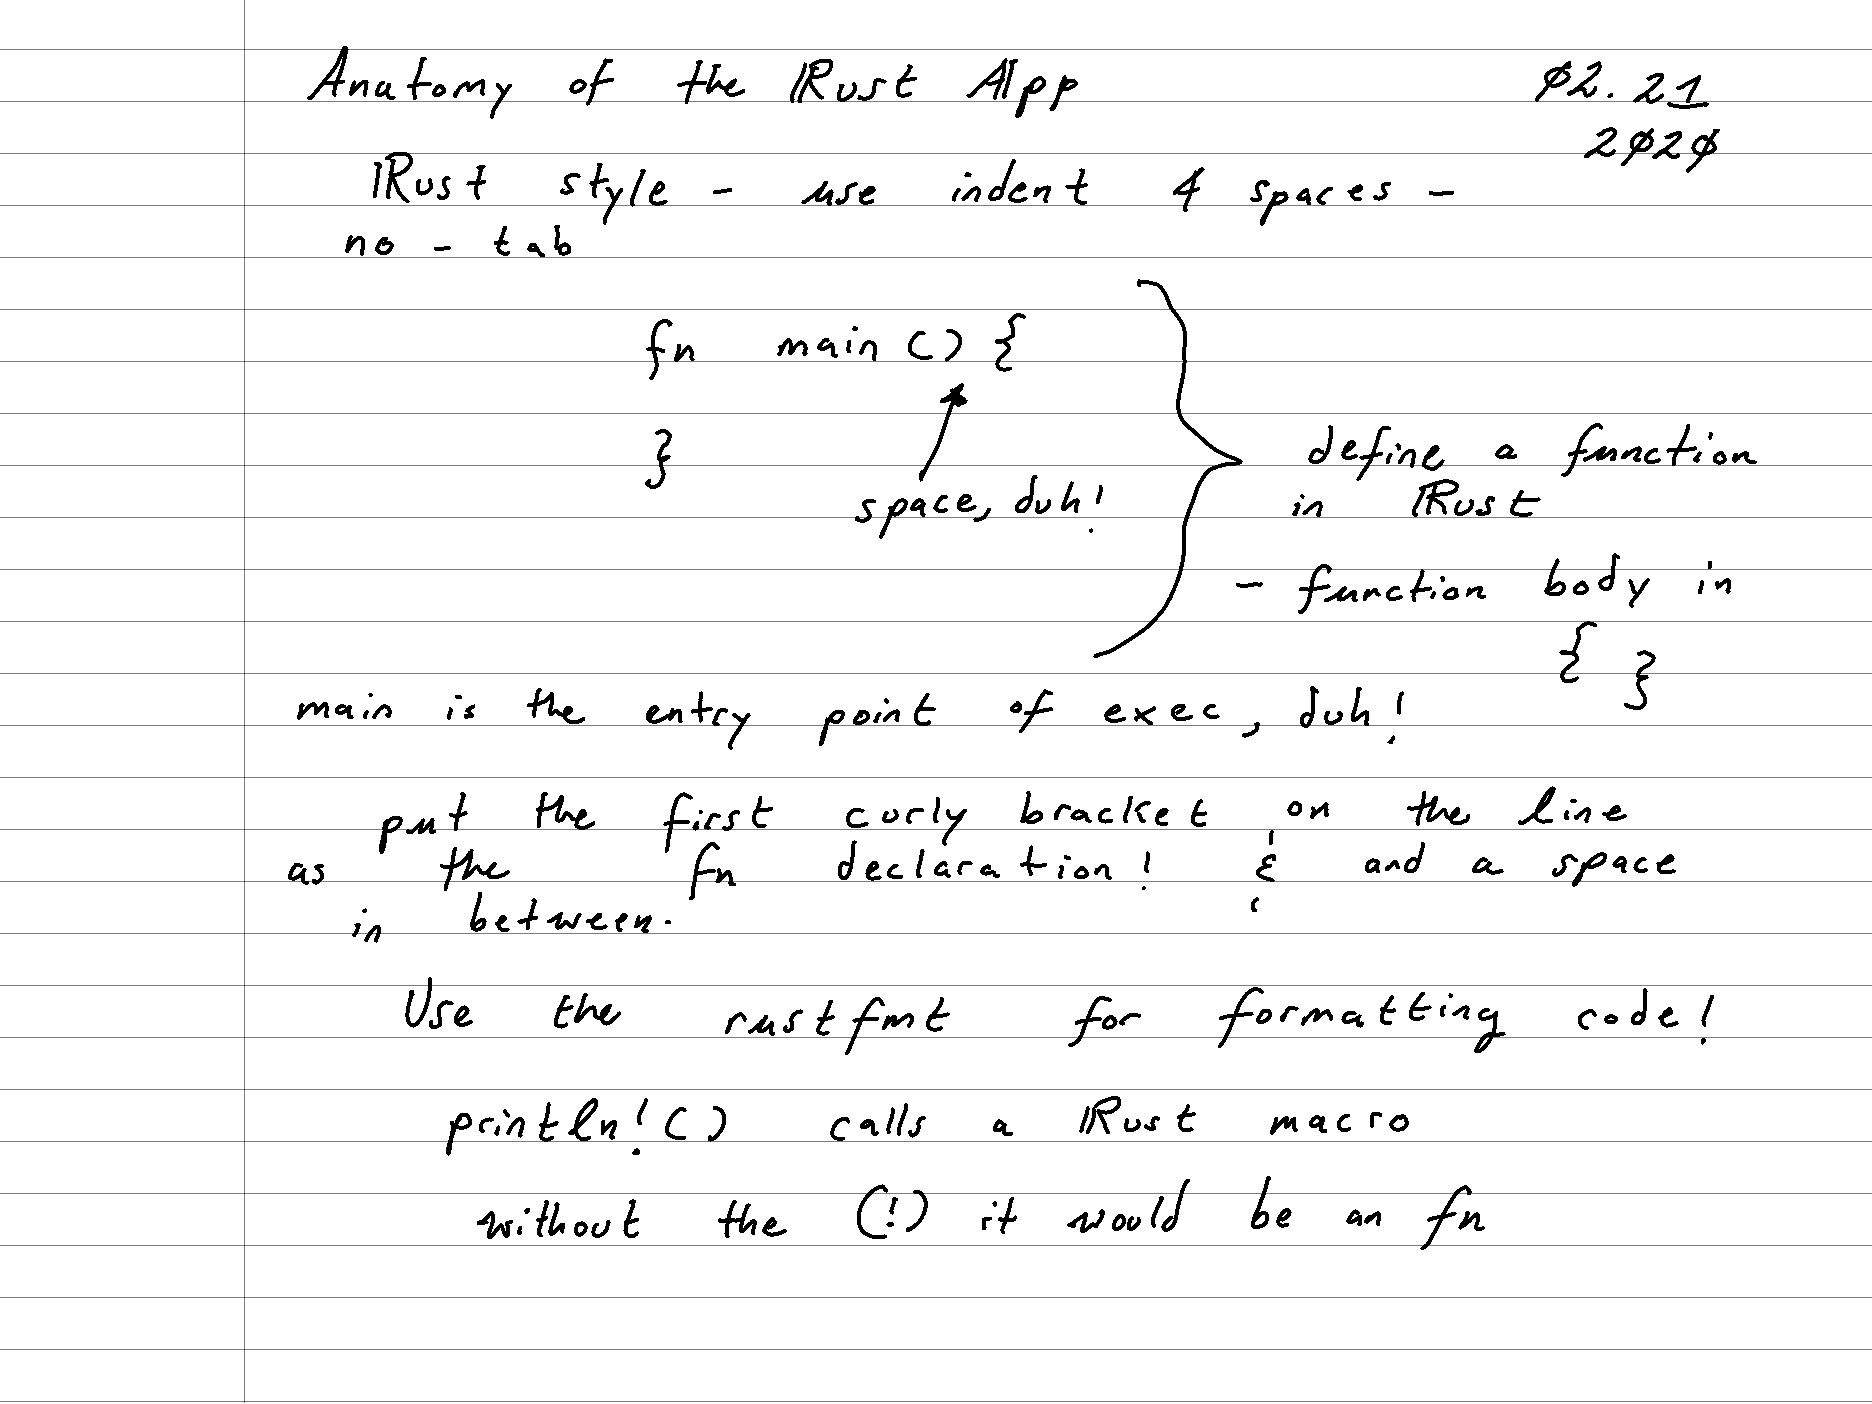 Anatomy of the Rust App
02.21
2020
Rust style - use indent 4 spaces -
no - tab
fn main () {
}
space, duh!
define a function
in Rust
- function body in
{ }
main is the entry point of exec, duh!
put the first curly bracket on the line
as the fn declaration! & and a space
in between.
Use the rustfmt for formatting code!
println!() calls a Rust macro
without the (!) it would be an fn